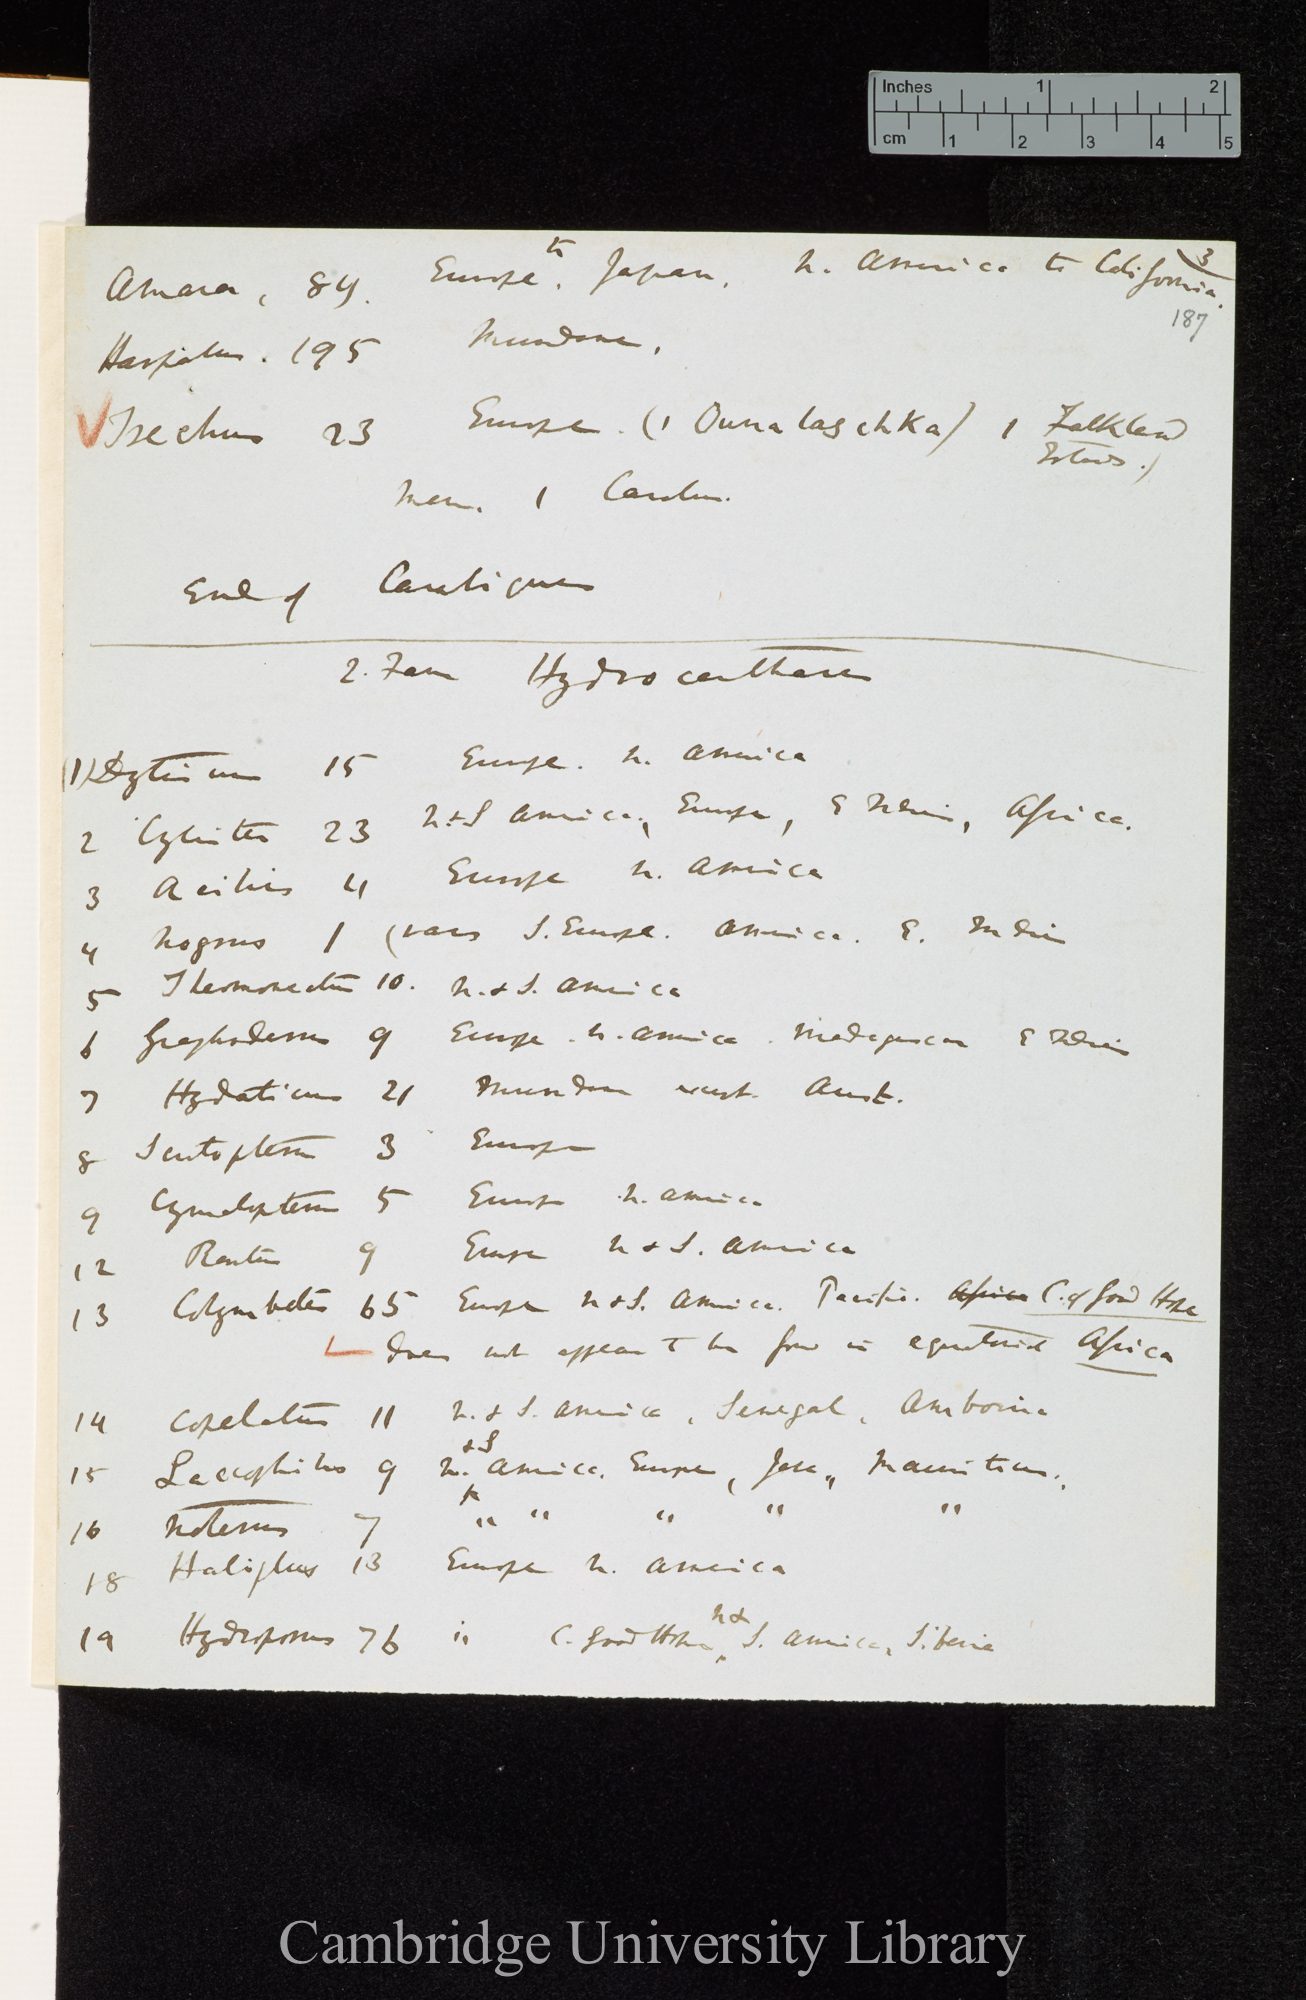 Inches 1 2
cm 1 2 3 4 5
3
Amara, 84. Europe to Japan, N. America to California.
187
Harpalus. 195 Mundane,
Trechus 23 Europe. (1 Ounalaschka) 1 Falkland
Islands.)
Mem. 1 Carabus.
End of Carabiques
2. Fam Hydrocanthares
(1) Dytiscus 15 Europe. N. America
2 Cybister 23 N & S America, Europe, E Indies, Africa.
3 Acilius 4 Europe N. America
4 Nogrus 1 (vars S. Europe. America. E. Indies
5 Thermonectus 10. N. & S. America
6 Graphoderus 9 Europe. N. America. Madagascar E Indies
7 Hydaticus 21 Mundane except. Aust.
8 Scutopterus 3 Europe
9 Cymatopterus 5 Europe N. America
12 Rantus 9 Europe N & S. America
13 Colymbetes 65 Europe N & S. America. Pacific. Africa C. of Good Hope
does not appear to be found in equatorial Africa
14 Copelatus 11 N. & S. America, Senegal, Amboina
15 Laccophilus 9 N. & S America. Europe, Java, Mauritius.,
16 Noterus 7 " " " " "
18 Haliplus 13 Europe N. America
19 Hydroporus 76 " C. Good Hope, N & S. America, Siberia
Cambridge University Library